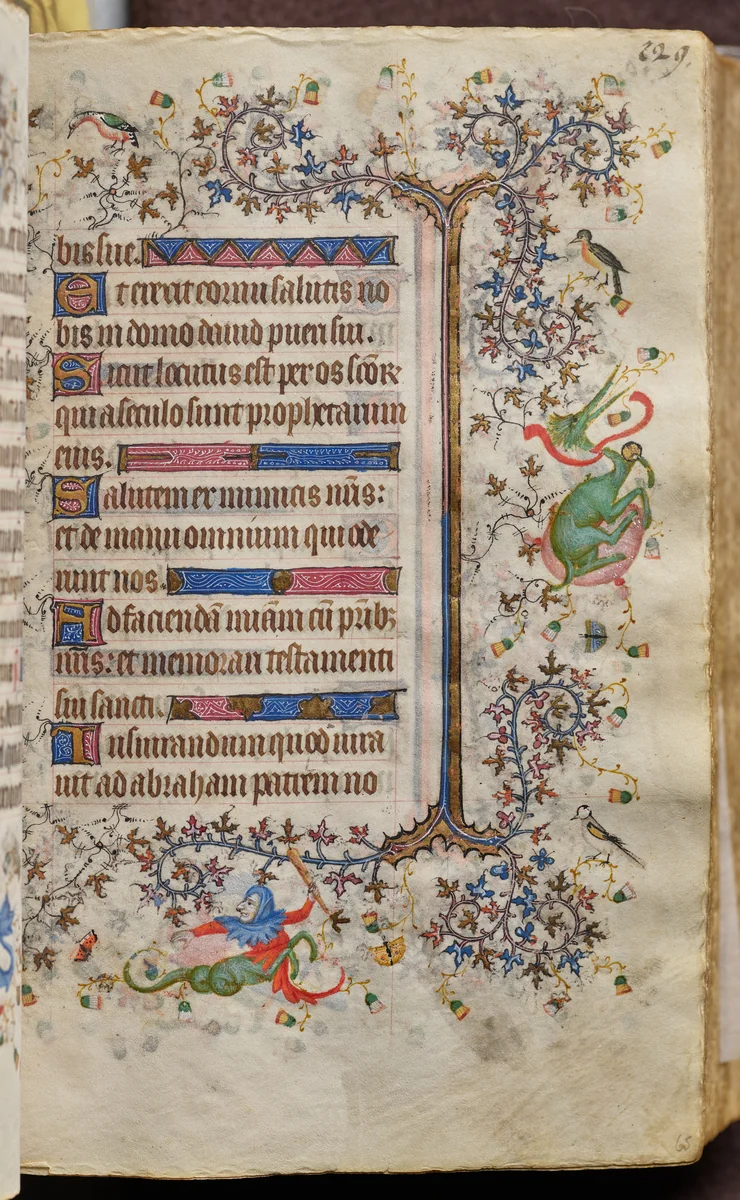 229.
bis sue.
Et erexit cornu salutis no
bis in domo dauid pueri sui.
Sicut locutus est per os scōꝝ
qui a seculo sunt prophetarum
eius.
Salutem ex inimicis nr̄is:
et de manu omnium qui ode
runt nos.
Ad faciendā mīam cū prīb;
nr̄is: et memorari testamenti
sui sancti.
Iusiurandum quod iura
uit ad abraham patrem no
65